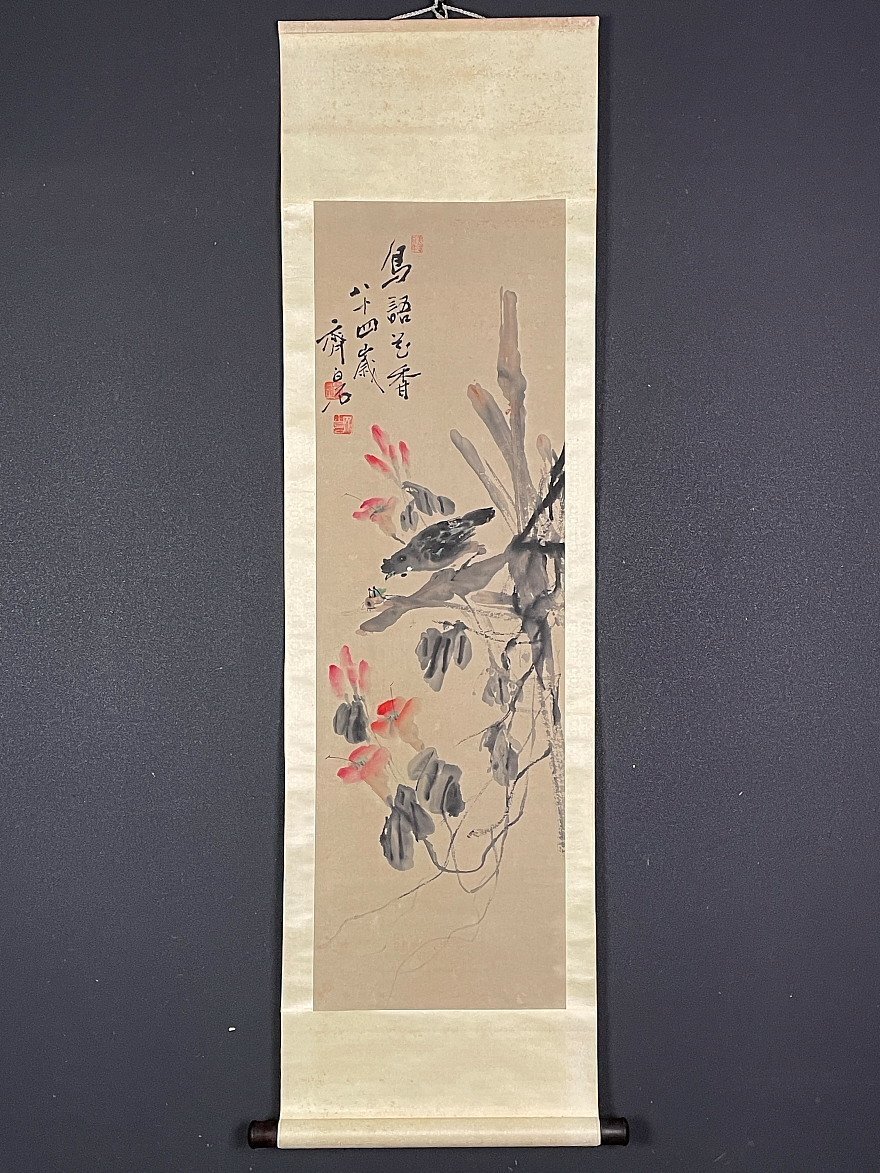 鳥語花香
八十四歲
齊白石